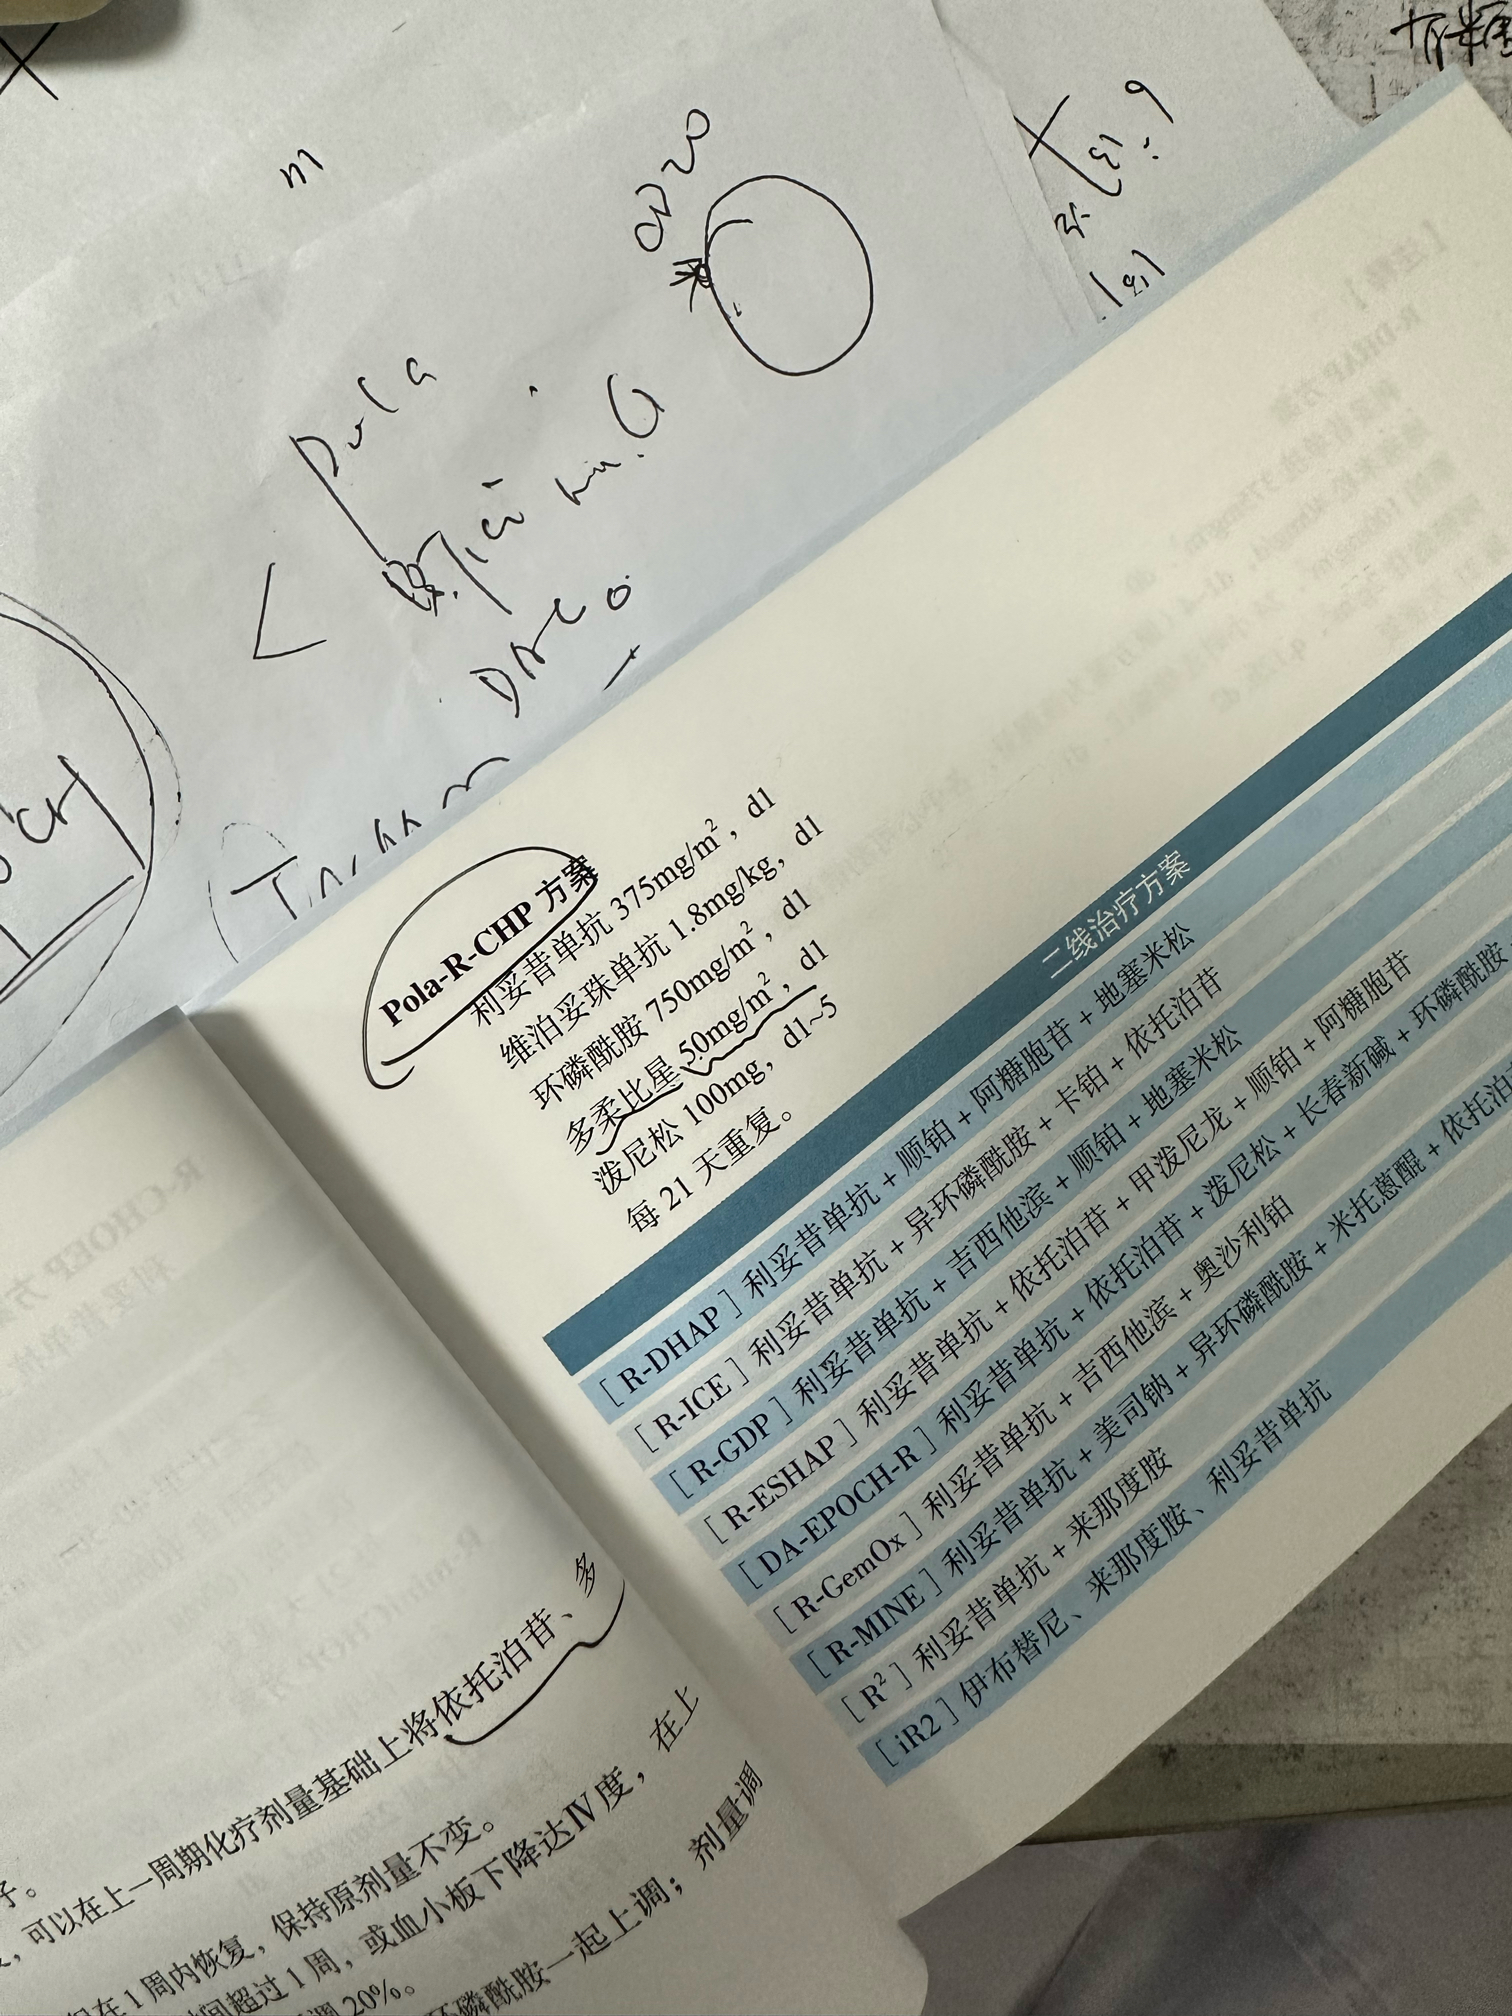 CD20
pola
Pola-R-CHP 方案
利妥昔单抗 375mg/m²，d1
维泊妥珠单抗 1.8mg/kg，d1
环磷酰胺 750mg/m²，d1
多柔比星 50mg/m²，d1
泼尼松 100mg，d1~5
每 21 天重复。
二线治疗方案
［R-DHAP］利妥昔单抗 + 顺铂 + 阿糖胞苷 + 地塞米松
［R-ICE］利妥昔单抗 + 异环磷酰胺 + 卡铂 + 依托泊苷
［R-GDP］利妥昔单抗 + 吉西他滨 + 顺铂 + 地塞米松
［R-ESHAP］利妥昔单抗 + 依托泊苷 + 甲泼尼龙 + 顺铂 + 阿糖胞苷
［DA-EPOCH-R］利妥昔单抗 + 依托泊苷 + 泼尼松 + 长春新碱 + 环磷酰胺
［R-GemOx］利妥昔单抗 + 吉西他滨 + 奥沙利铂
［R-MINE］利妥昔单抗 + 美司钠 + 异环磷酰胺 + 米托蒽醌 + 依托泊
［R²］利妥昔单抗 + 来那度胺
［iR2］伊布替尼、来那度胺、利妥昔单抗
子。
，可以在上一周期化疗剂量基础上将依托泊苷、多
在 1 周内恢复，保持原剂量不变。
间超过 1 周，或血小板下降达Ⅳ度，在上
调 20%。
环磷酰胺一起上调；剂量调